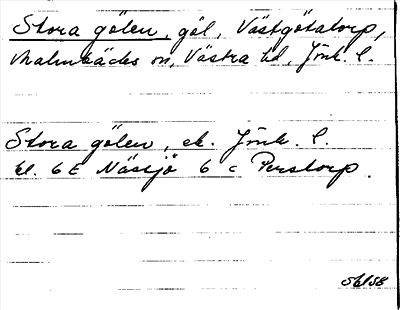 Stora gölen, göl, Västgötatorp,
Malmbäcks sn, Västra hd, Jönk. l.
Stora gölen, ek. Jönk. l.
bl. 6 E Nässjö 6 c Perstorp.